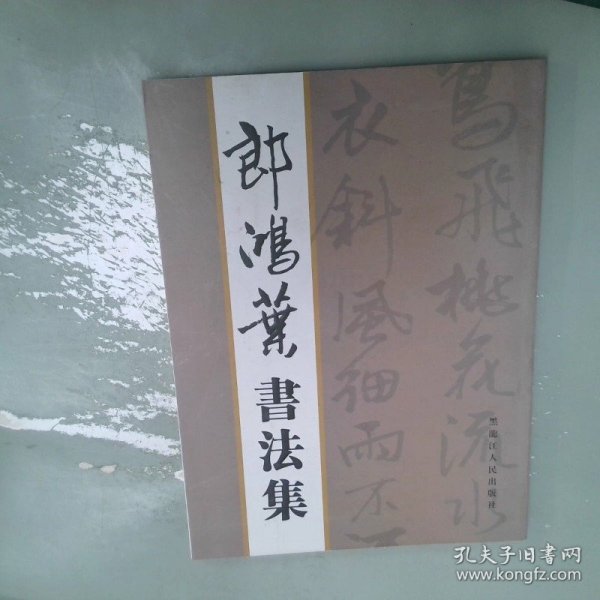 郎鴻葉書法集
鳥飛桃花流水
衣斜風細雨不
黑龍江人民出版社
孔夫子旧书网
www.kongfz.com